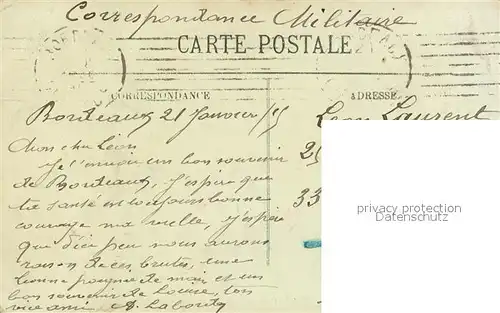 Correspondance Militaire
CARTE POSTALE
CORRESPONDANCE
ADRESSE
Bordeaux 21 Janvier /15
Léon Laurent
Mon cher Léon
Je t'envoie un bon souvenir
de Bordeaux, j'espère que
ta santé est toujours bonne
courage ma vieille, j'espère
que d'ici peu nous aurons
raison de ces brutes, une
bonne poignée de main et un
bon souvenir de Louise, ton
vieux ami A. Laborde
25
33
privacy protection
Datenschutz